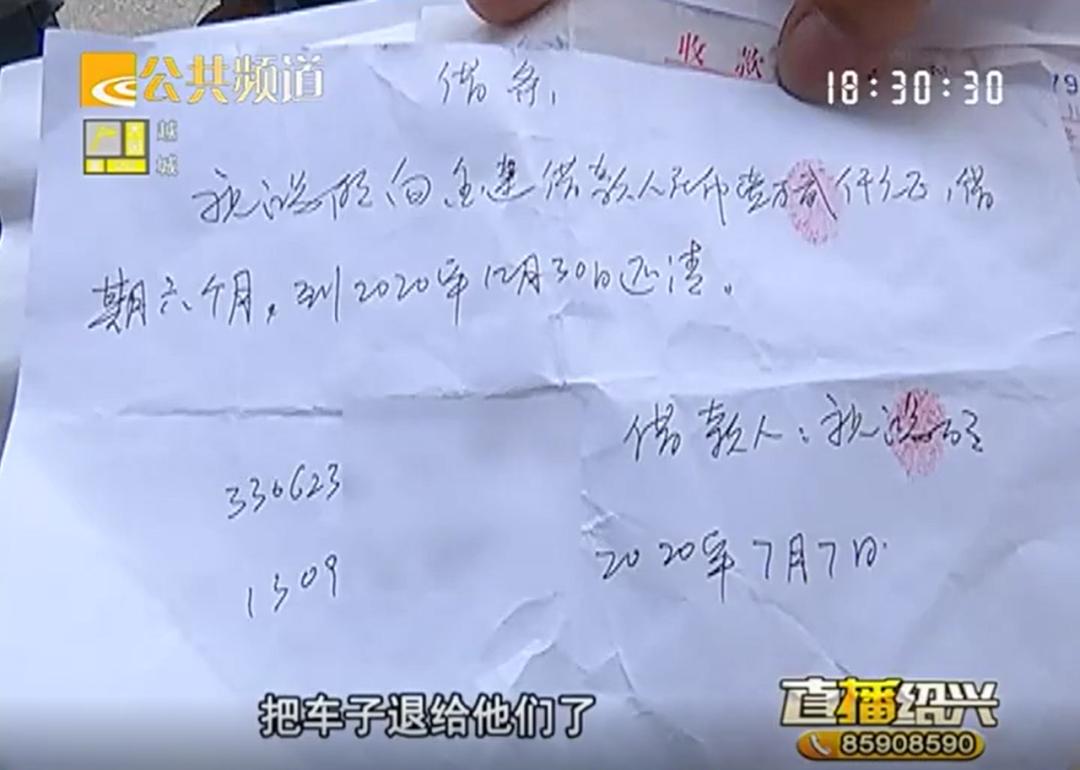 公共频道
18:30:30
收款
79
越城
借条
祝浩明向金建借款人民币壹万贰仟元正,借
期六个月,到2020年12月30日还清。
借款人:祝浩明
330623
1309
2020年7月7日
把车子退给他们了
直播绍兴
85908590